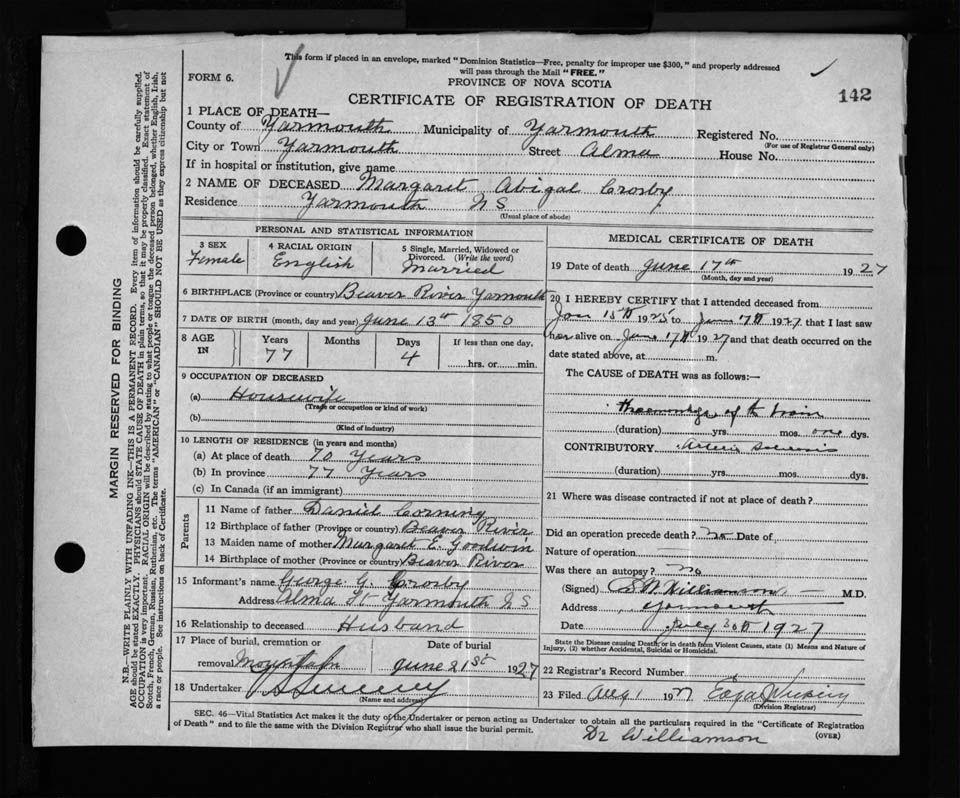 This form if placed in an envelope, marked "Dominion Statistics—Free, penalty for improper use $300," and properly addressed
will pass through the Mail "FREE."
FORM 6.
PROVINCE OF NOVA SCOTIA
CERTIFICATE OF REGISTRATION OF DEATH
142
1 PLACE OF DEATH—
County of Yarmouth Municipality of Yarmouth Registered No.
(For use of Registrar General only)
City or Town Yarmouth Street Alma House No.
If in hospital or institution, give name
2 NAME OF DECEASED Margaret Abigal Crosby
Residence Yarmouth N S
(Usual place of abode)
PERSONAL AND STATISTICAL INFORMATION
3 SEX
Female
4 RACIAL ORIGIN
English
5 Single, Married, Widowed or
Divorced. (Write the word)
Married
6 BIRTHPLACE (Province or country) Beaver River Yarmouth
7 DATE OF BIRTH (month, day and year) June 13th 1850
8 AGE
IN
Years
77
Months
Days
4
If less than one day,
hrs. or min.
9 OCCUPATION OF DECEASED
(a) Housewife
(Trade or occupation or kind of work)
(b)
(Kind of industry)
10 LENGTH OF RESIDENCE (in years and months)
(a) At place of death 70 Years
(b) In province 77 Years
(c) In Canada (if an immigrant)
Parents
11 Name of father Daniel Corning
12 Birthplace of father (Province or country) Beaver River
13 Maiden name of mother Margaret E. Goodwin
14 Birthplace of mother (Province or country) Beaver River
15 Informant's name George G. Crosby
Address Alma St Yarmouth N S
16 Relationship to deceased Husband
17 Place of burial, cremation or
removal
Date of burial
June 21st 1927
18 Undertaker
(Name and address)
MEDICAL CERTIFICATE OF DEATH
19 Date of death June 17th 1927
(Month, day and year)
20 I HEREBY CERTIFY that I attended deceased from
Jan 15th 1925 to June 17th 1927 that I last saw
her alive on June 17th 1927 and that death occurred on the
date stated above, at m.
The CAUSE of DEATH was as follows:—
of the brain
(duration) yrs. mos. one dys.
CONTRIBUTORY
(duration) yrs. mos. dys.
21 Where was disease contracted if not at place of death?
Did an operation precede death? no Date of
Nature of operation
Was there an autopsy? no
(Signed) Williamson M.D.
Address Yarmouth
Date July 30th 1927
State the Disease causing Death, or in death from Violent Causes, state (1) Means and Nature of
Injury, (2) whether Accidental, Suicidal or Homicidal.
22 Registrar's Record Number
23 Filed Aug 1 1927
(Division Registrar)
SEC. 46—Vital Statistics Act makes it the duty of the Undertaker or person acting as Undertaker to obtain all the particulars required in the "Certificate of Registration
of Death" and to file the same with the Division Registrar who shall issue the burial permit.
(OVER)
Dr Williamson
MARGIN RESERVED FOR BINDING
N.B.—WRITE PLAINLY WITH UNFADING INK—THIS IS A PERMANENT RECORD. Every item of information should be carefully supplied.
AGE should be stated EXACTLY. PHYSICIANS should STATE CAUSE OF DEATH in plain terms, so that it may be properly classified. Exact statement of
OCCUPATION is very important. RACIAL ORIGIN will be described by stating to what people or tongue the deceased person belonged, whether English, Irish,
Scotch, French, German, Russian, Ruthenian, etc. The terms "AMERICAN" or "CANADIAN" SHOULD NOT BE USED as they express citizenship but not
a race or people. See instructions on back of Certificate.